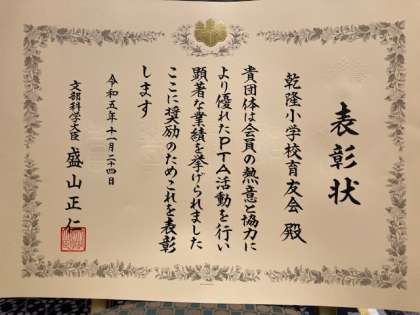 表彰状
乾隆小学校育友会 殿
貴団体は会員の熱意と協力に
より優れたPTA活動を行い
顕著な業績を挙げられました
ここに奨励のためこれを表彰
します
令和五年十一月二十四日
文部科学大臣 盛山正仁